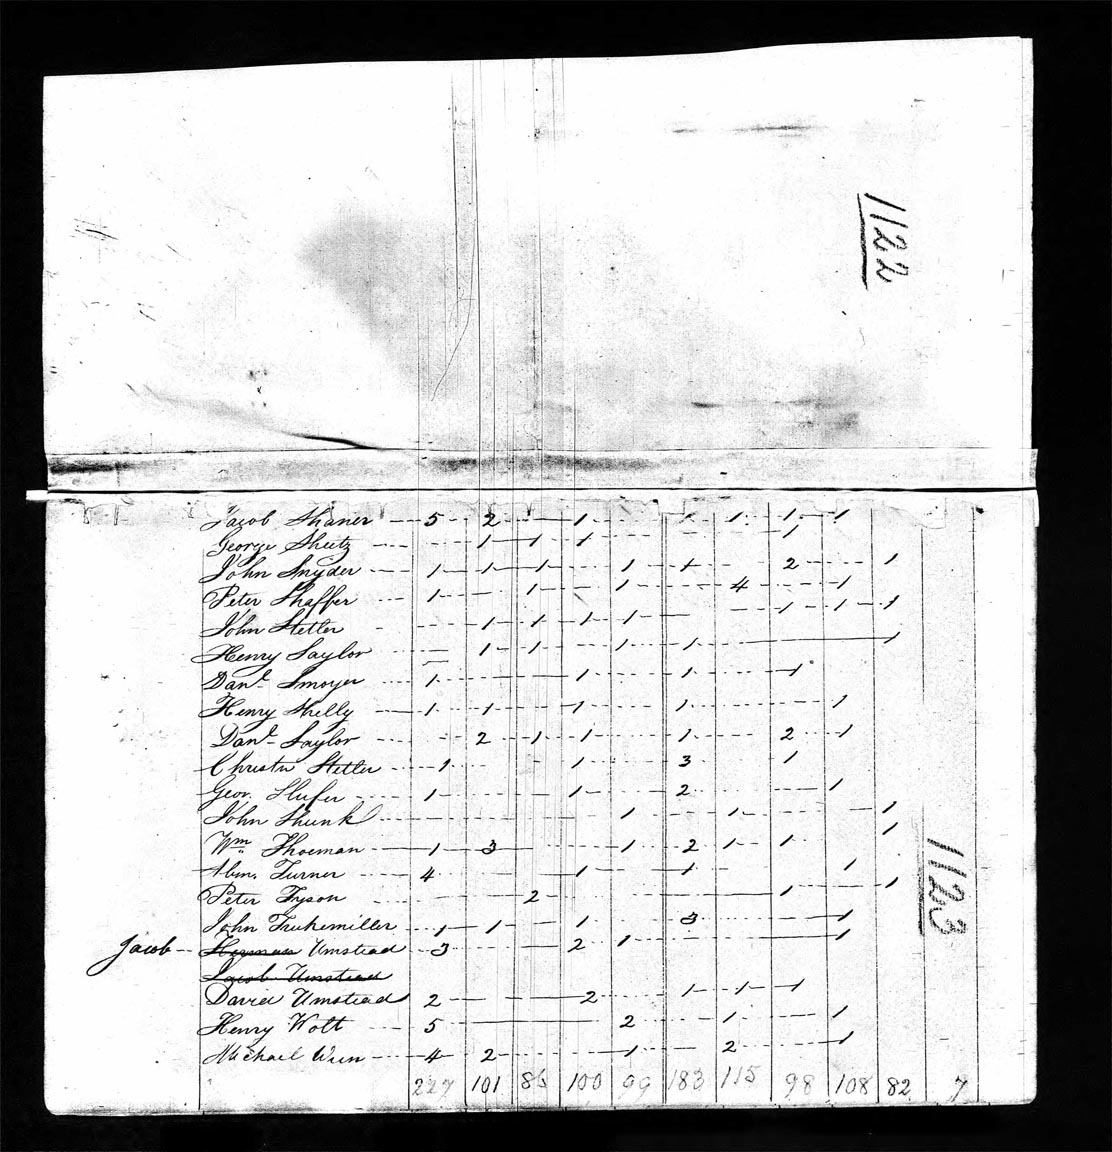 1122
Jacob Shaner 5 2 1 1 1 1 1
George Sheitz 1 1 1 1
John Snyder 1 1 1 1 1 2 1
Peter Shaffer 1 1 1 4 1
John Stetler 1 1 1 1 1 1 1
Henry Saylor 1 1 1 1 1
Danl. Smoyer 1 1 1 1
Henry Shelly 1 1 1 1 1
Danl. Saylor 2 1 1 1 2 1
Christn Stetler 1 1 3 1
Geor. Slufer 1 1 2 1
John Shunk 1 1 1
Wm. Shoeman 1 3 1 2 1 1 1
Abm. Turner 4 1 1 1
Peter Tyson 2 1 1
John Trukemiller 1 1 1 3 1
Jacob Herman Umstead 3 2 1 1
Jacob Umstead
David Umstead 2 2 1 1 1
Henry Wolt 5 2 1 1
Michael Wien 4 2 1 2 1
227 101 86 100 99 183 115 98 108 82 7
1123